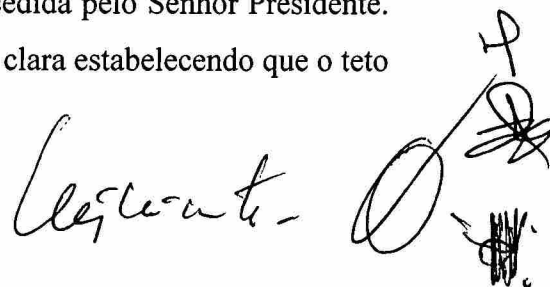 cedida pelo Senhor Presidente.
clara estabelecendo que o teto